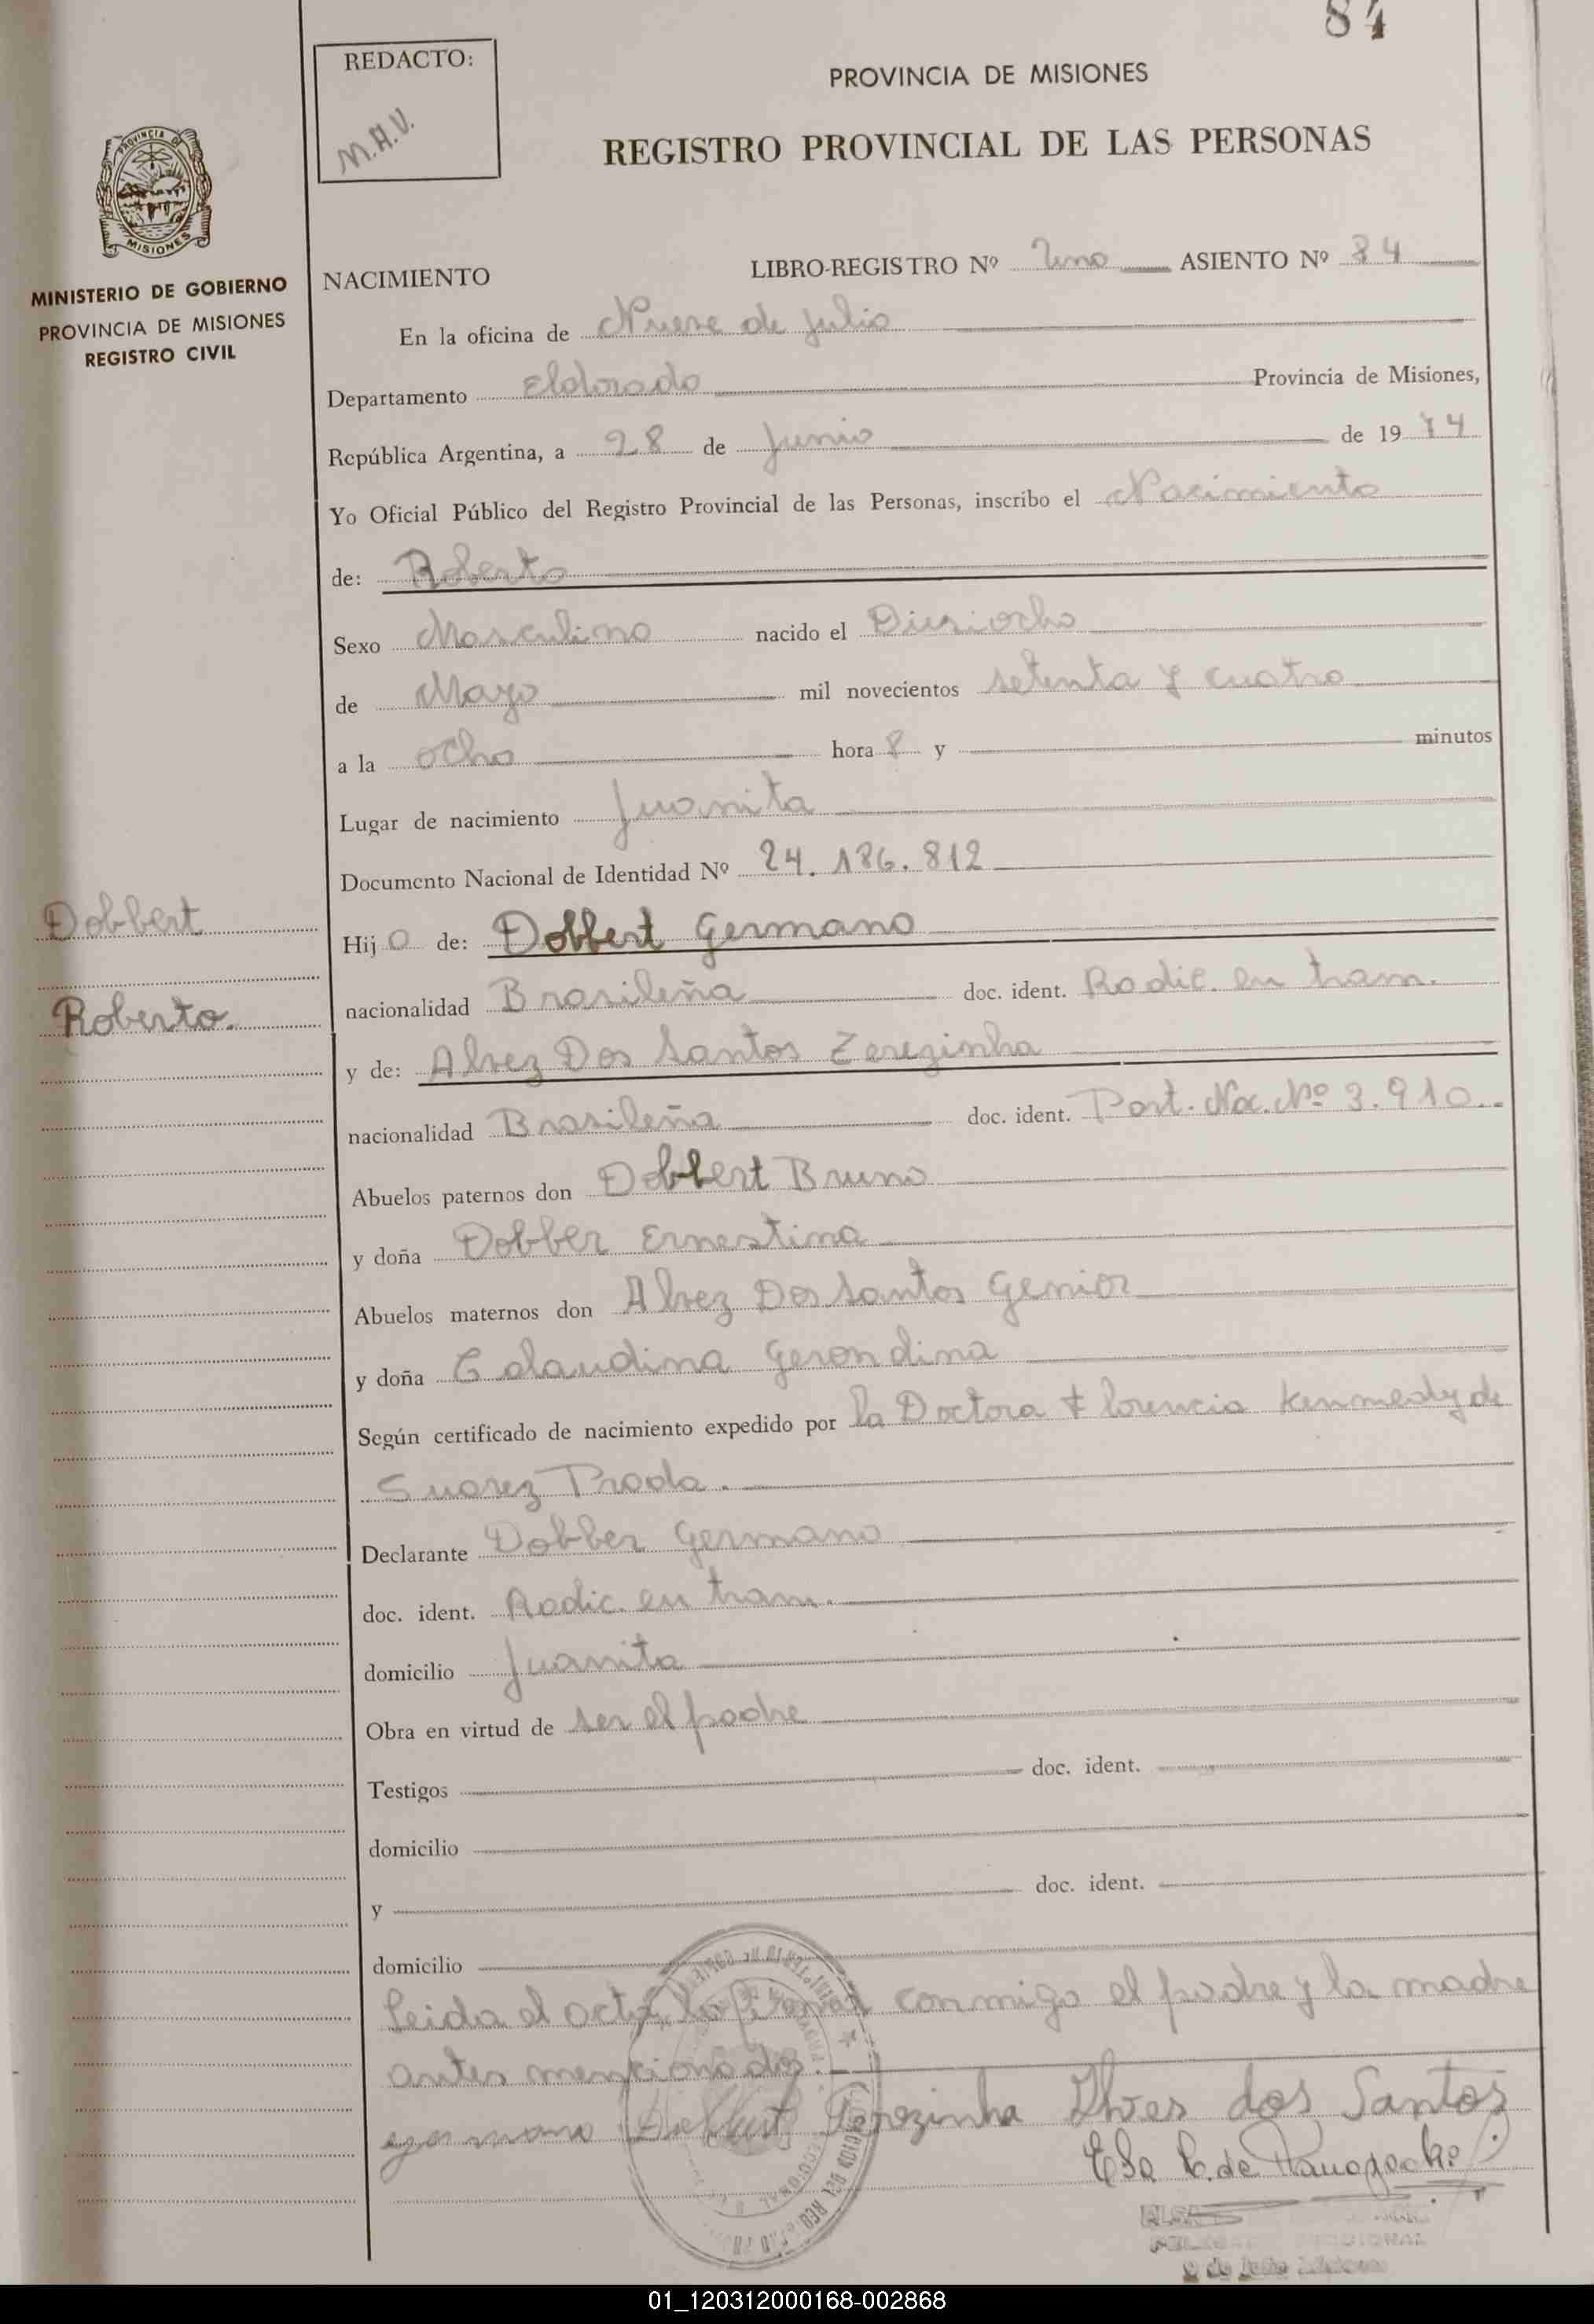 84
REDACTO:
M.A.V.
PROVINCIA DE MISIONES
REGISTRO PROVINCIAL DE LAS PERSONAS
PROVINCIA DE
MISIONES
MINISTERIO DE GOBIERNO
PROVINCIA DE MISIONES
REGISTRO CIVIL
NACIMIENTO LIBRO-REGISTRO Nº Uno ASIENTO Nº 84
En la oficina de Nueve de Julio
Departamento Eldorado Provincia de Misiones,
República Argentina, a 28 de Junio de 1974
Yo Oficial Público del Registro Provincial de las Personas, inscribo el Nacimiento
de: Roberto
Sexo Masculino nacido el Dieziocho
de Mayo mil novecientos setenta y cuatro
a la ocho hora 8 y minutos
Lugar de nacimiento Juanita
Documento Nacional de Identidad Nº 24.186.812
Dobbert
Hijo de: Dobbert Germano
nacionalidad Brasileña doc. ident. Radic. en tram.
Roberto.
y de: Alvez Dos Santos Zerezinha
nacionalidad Brasileña doc. ident. Part. Nac. Nº 3.910.
Abuelos paternos don Dobbert Bruno
y doña Dobber Ernestina
Abuelos maternos don Alvez Dos Santos Genior
y doña Colaudina Gerondina
Según certificado de nacimiento expedido por la Doctora Florencia Kenmedy de
Suarez Prada.
Declarante Dobber Germano
doc. ident. Radic. en tram.
domicilio Juanita
Obra en virtud de ser el padre
Testigos doc. ident.
domicilio
y doc. ident.
domicilio
Leida el acta, la firman conmigo el padre y la madre
antes mencionados.
germano Dobbert Terezinha Alves dos Santos
Elsa C. de
ELSA
9 de Julio Misiones
01_120312000168-002868